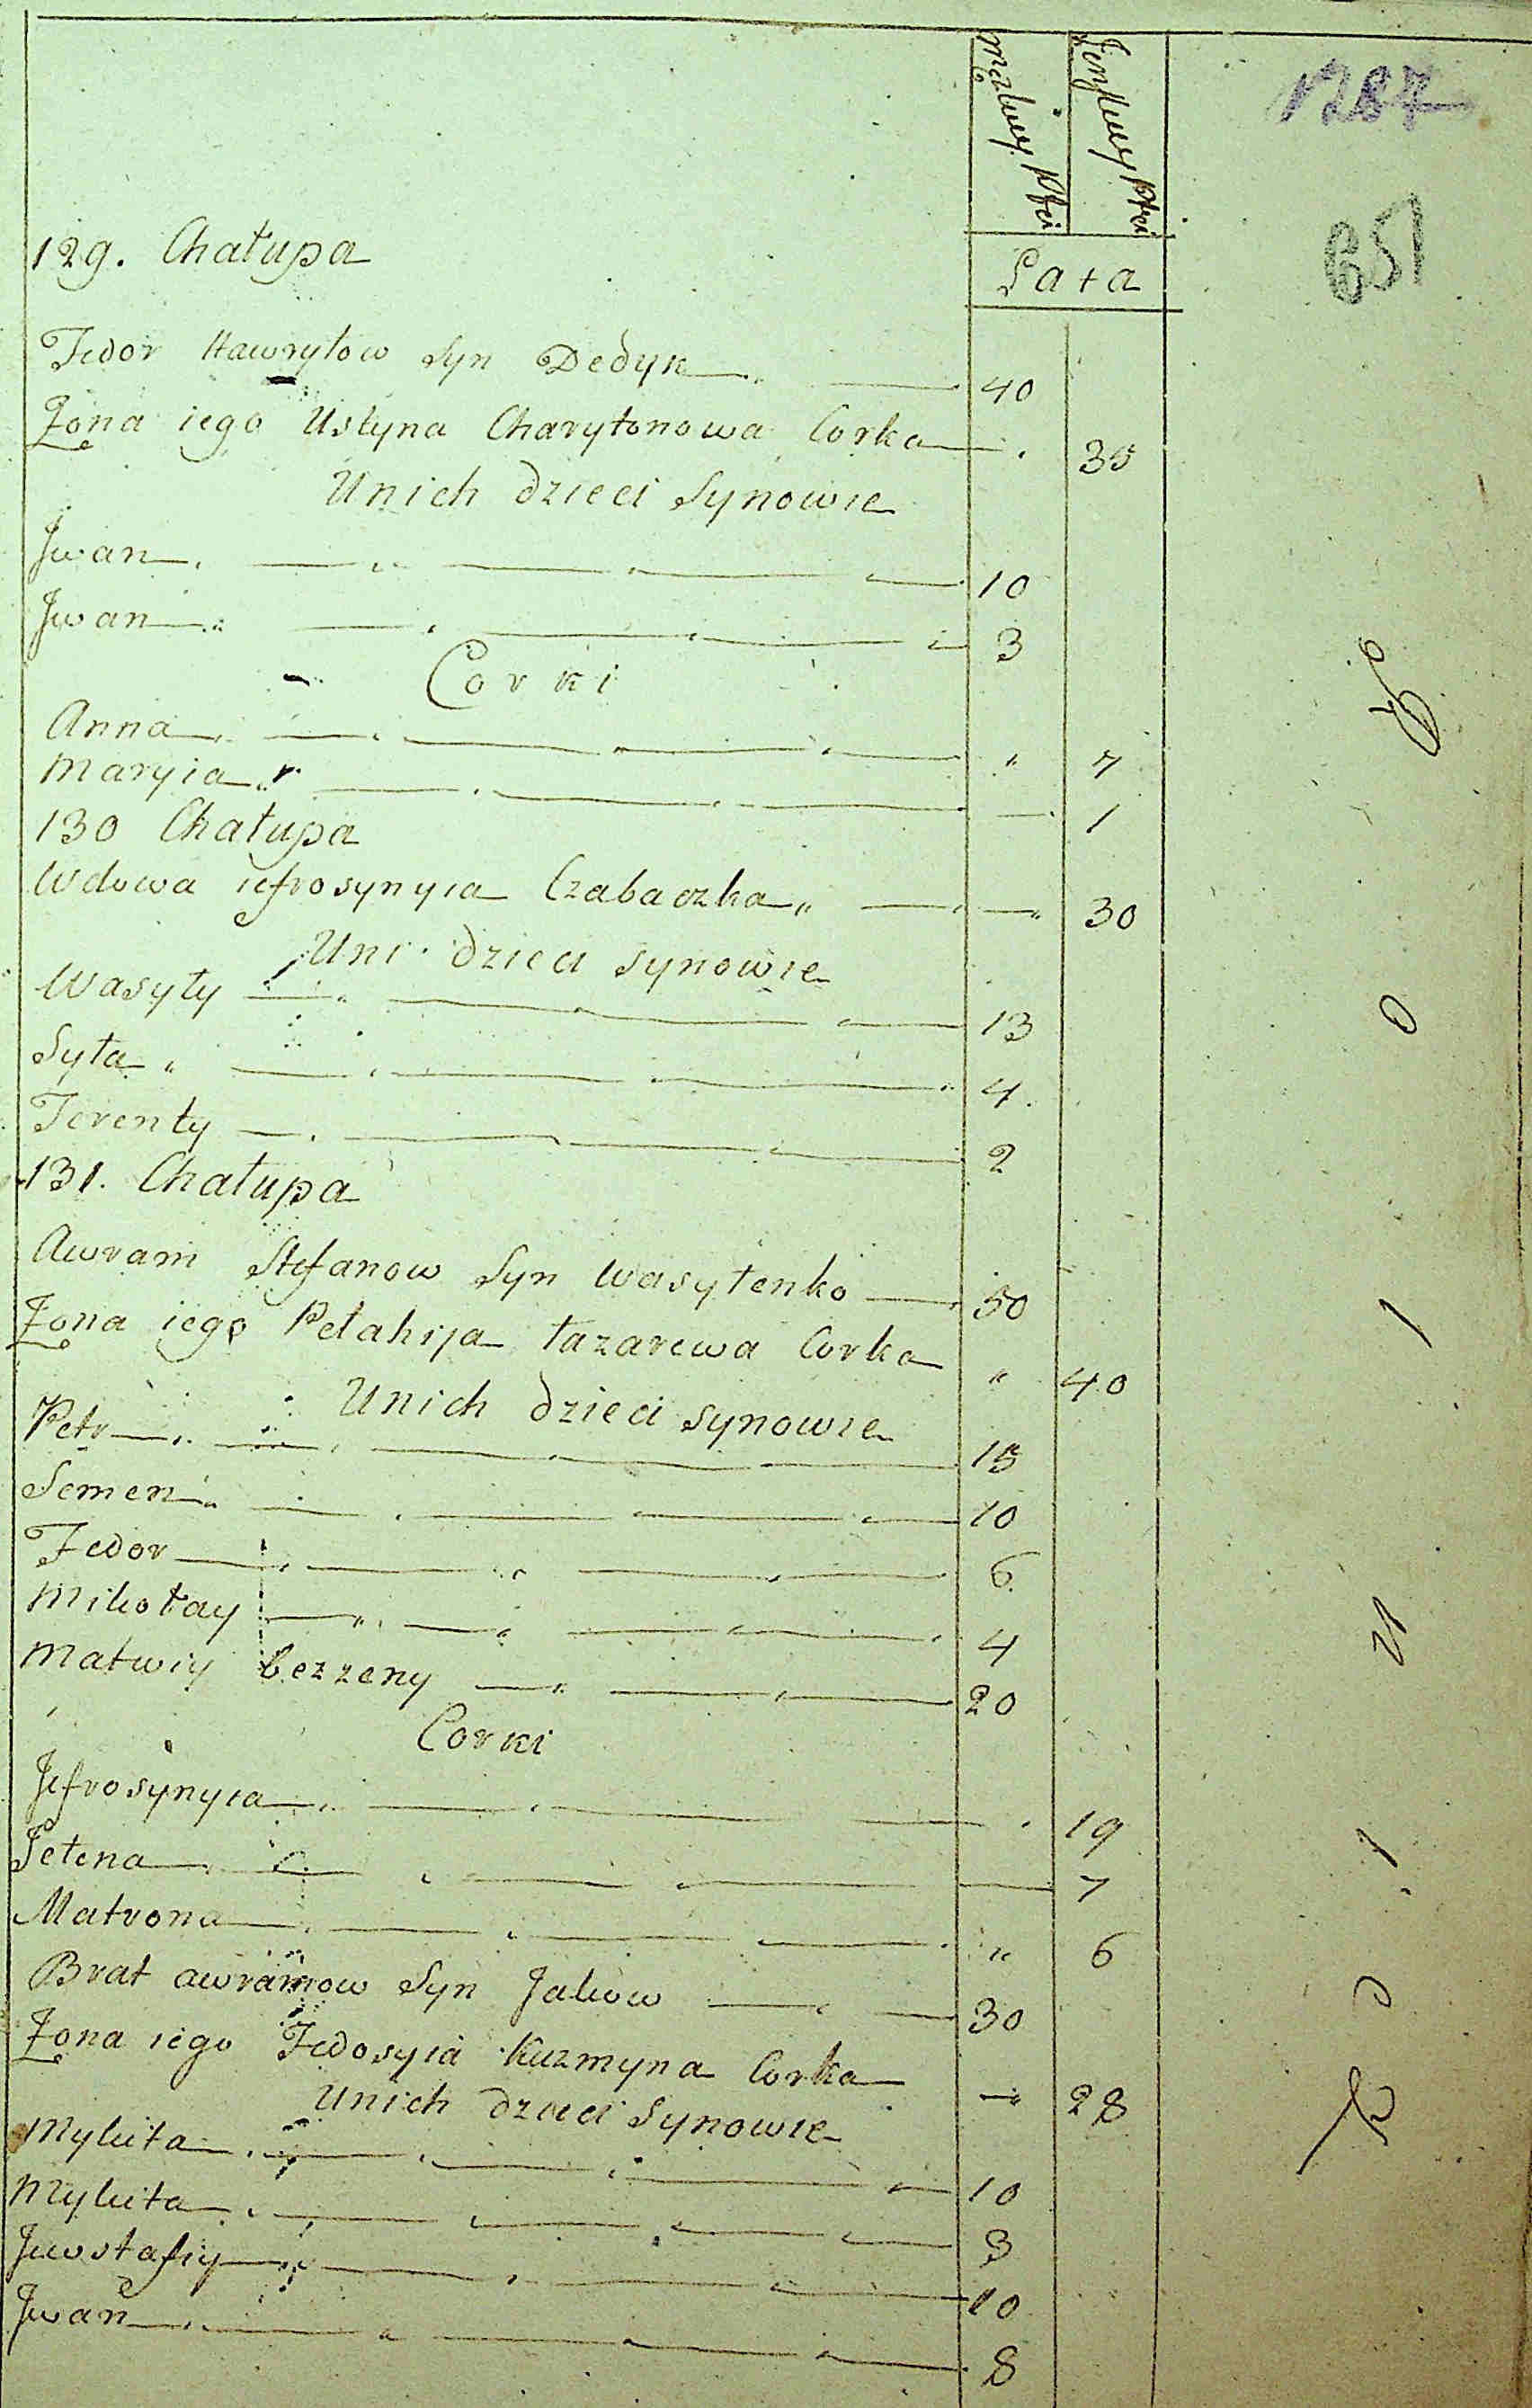 męskiey Płci
Żeńskiey Płci
1287
651
Lata
129. Chałupa
Fedor Hawryłow Syn Dedyk 40
Żona iego Ustyna Charytonowa Corka 35
Unich dzieci Synowie
Jwan 10
Jwan 3
Corki
Anna 7
Maryia 1
130 Chałupa
Wdowa iefrosynyia Czabaczka 30
Uni dzieci synowie
Wasyly 13
Syła 4
Terenty 2
131. Chałupa
Awram Stefanow Syn Wasyłenko 50
Żona iego Pełahija Łazarewa Corka 40
Unich dzieci synowie
Petr 15
Semen 10
Fedor 6
Mikołay 4
Matwiy bezzeny 20
Corki
Jefrosynyia 19
Jełena 7
Matrona 6
Brat awramow Syn Jakow 30
Żona iego Fedosyia Kuzmyna Corka 28
Unich dzieci Synowie
Mykita 10
Mykita 3
Jewstafiy 10
Jwan 8